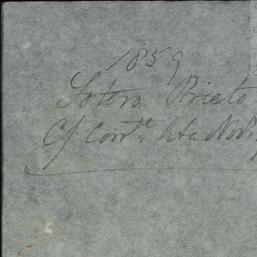 1859
Sotero Prieto
C/ Corr.te hta Nov.